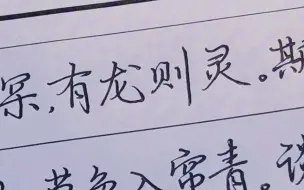 深,有龙则灵。斯
草色入帘青。谈